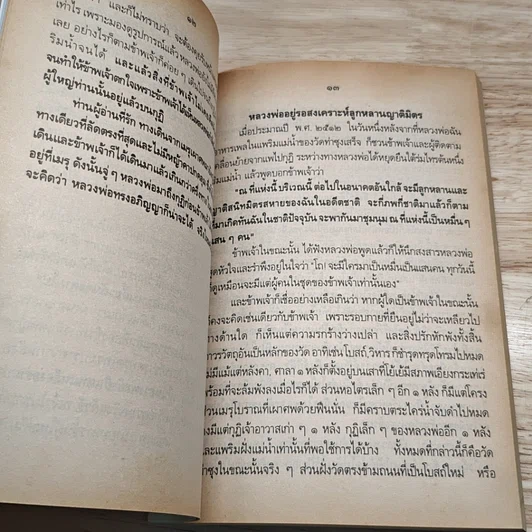 ๑๒
และก็ไม่ทราบว่า จะต้อง
เท่าไร เพราะมองดูรูปการณ์แล้ว หลวงพ่อ
เลย อย่างไรก็ตามข้าพเจ้าก็ค่อย ๆ เดิน
ริมน้ำจนได้ และแล้วสิ่งที่ข้าพเจ้า
จนทำให้ข้าพเจ้าตกใจเพราะข้าพเจ้าได้เห็น
ผู้ใหญ่ท่านนั้นอยู่แล้วบนกุฏิ
ท่านผู้อ่านที่รัก ทางเดินจากเมรุ
ทางเดียวที่ลัดตรงที่สุดและไม่มีหญ้าคา
เดินและข้าพเจ้าก็ได้เดินมาแล้วเกินกว่าครึ่ง
อยู่ที่เมรุ ดังนั้นจู่ ๆ หลวงพ่อมาถึงกุฏิก่อนข้าพเจ้า
จะคิดว่า หลวงพ่อทรงอภิญญาก็น่าจะได้
๑๓
หลวงพ่ออยู่รอสงเคราะห์ลูกหลานญาติมิตร
เมื่อประมาณปี พ.ศ. ๒๕๑๒ ในวันหนึ่งหลังจากที่หลวงพ่อฉัน
อาหารเพลในแพริมแม่น้ำของวัดท่าซุงเสร็จ ก็ชวนข้าพเจ้าและผู้ติดตาม
เคลื่อนย้ายจากแพไปกุฏิ ระหว่างทางหลวงพ่อได้หยุดยืนใต้ร่มไทรต้นหนึ่ง
ริมแม่น้ำ แล้วพูดบอกข้าพเจ้าว่า
"ณ ที่แห่งนี้ บริเวณนี้ ต่อไปในอนาคตอันใกล้ จะมีลูกหลานและ
ญาติสนิทมิตรสหายของฉันในอดีตชาติ จะกี่ภพกี่ชาติมาแล้วก็ตาม
ที่มาเกิดทันฉันในชาติปัจจุบัน จะพากันมาชุมนุม ณ ที่แห่งนี้เป็นหมื่น ๆ
แสน ๆ คน"
ข้าพเจ้าในขณะนั้น ได้ฟังหลวงพ่อพูดแล้วก็ให้นึกสงสารหลวงพ่อ
สุดหัวใจและรำพึงอยู่ในใจว่า "โถ! จะมีใครมาเป็นหมื่นเป็นแสนคน ทุกวันนี้
ก็ดูเหมือนจะมีแต่ผู้คนในชุดของข้าพเจ้าเท่านั้นเอง"
และข้าพเจ้าก็เชื่ออย่างเหลือเกินว่า หากผู้ใดเป็นข้าพเจ้าในขณะนั้น
คงจะคิดเช่นเดียวกับข้าพเจ้า เพราะรอบกายที่ยืนอยู่ไม่ว่าจะเหลียวไป
ทางด้านใด ก็เห็นแต่ความรกร้างว่างเปล่า และสิ่งปรักหักพังทั้งสิ้น
ถาวรวัตถุอันเป็นหลักของวัด อาทิเช่นโบสถ์,วิหาร ก็ชำรุดทรุดโทรมไปหมด
ไม่มีแม้แต่หลังคา, ศาลา ๑ หลังก็ตั้งอยู่บนเสาที่โย้เย้มีสภาพเอียงกระเท่เร่
พร้อมที่จะล้มพังลงเมื่อไรก็ได้ ส่วนหอไตรเล็ก ๆ อีก ๑ หลัง ก็มีแต่โครง
ส่วนเมรุโบราณที่เผาศพด้วยฟืนนั้น ก็มีคราบตะไคร่น้ำจับดำไปหมด
คงมีแต่กุฏิเจ้าอาวาสเก่า ๆ ๑ หลัง กุฏิเล็กๆ ของหลวงพ่ออีก ๑ หลัง
และแพริมฝั่งแม่น้ำเท่านั้นที่พอใช้การได้บ้าง ทั้งหมดที่กล่าวนี้ก็คือวัด
ท่าซุงในขณะนั้นจริง ๆ ส่วนฝั่งวัดตรงข้ามถนนที่เป็นโบสถ์ใหม่ หรือ